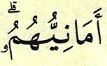 أَمَانِيُّهُمُۥۗ